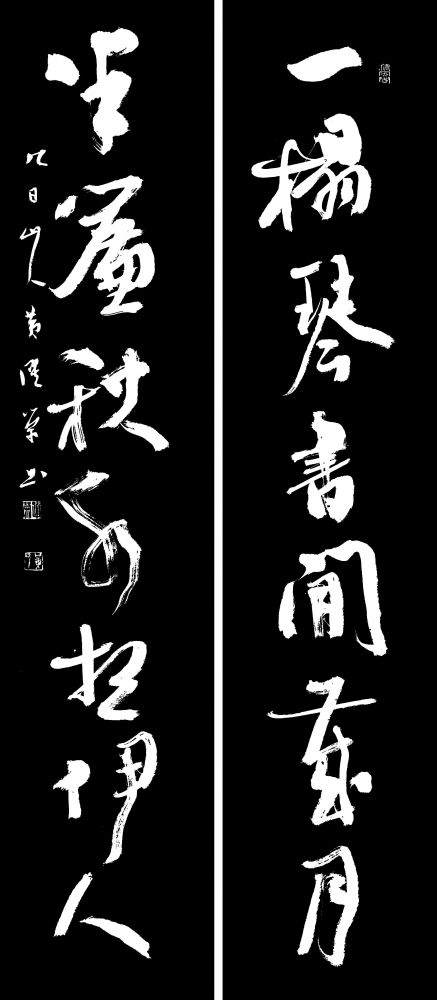 一榻琴書閒歲月
半簾秋伊人
九日山人黃書